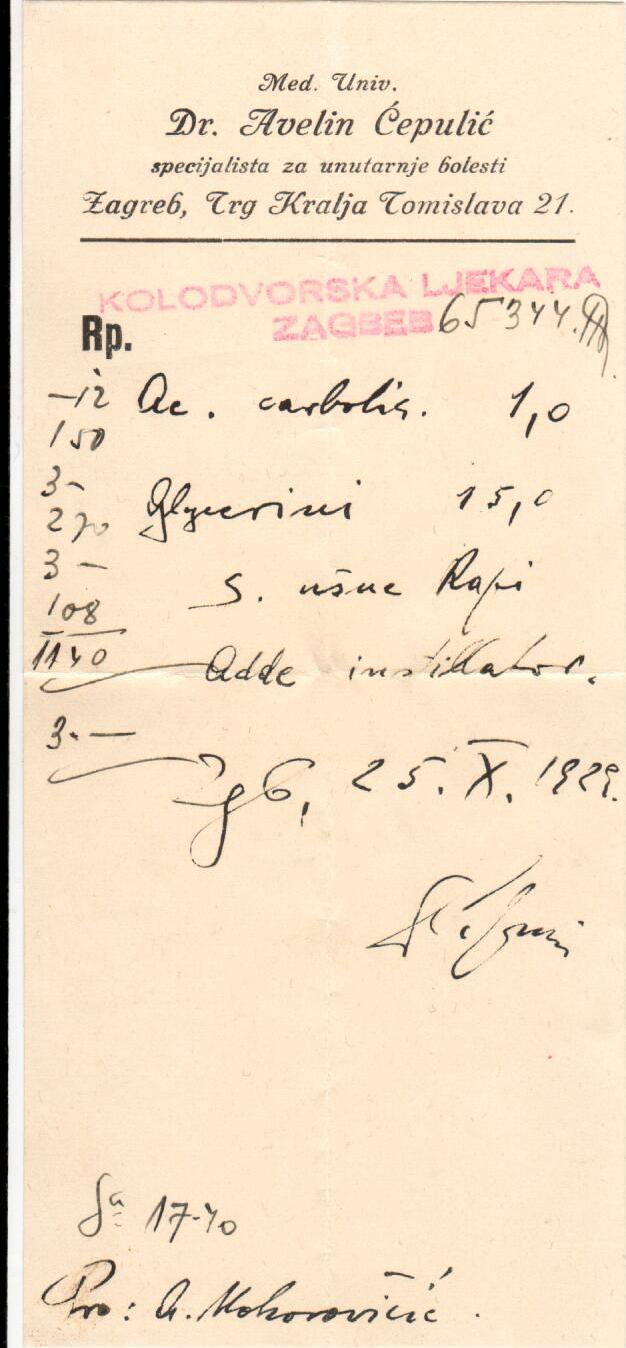 Med. Univ.
Dr. Avelin Ćepulić
specijalista za unutarnje bolesti
Zagreb, Trg Kralja Tomislava 21.
KOLODVORSKA LJEKARA
ZAGREB 65344.
Rp.
—12 Ac. carbolic. 1,0
150
3-
270 Glycerini 15,0
3—
S. ušne Kapi
108
1140 Adde instillator.
3.—
Zgb, 25. X. 1929.
17.40
Pro: A. Mohorovičić.